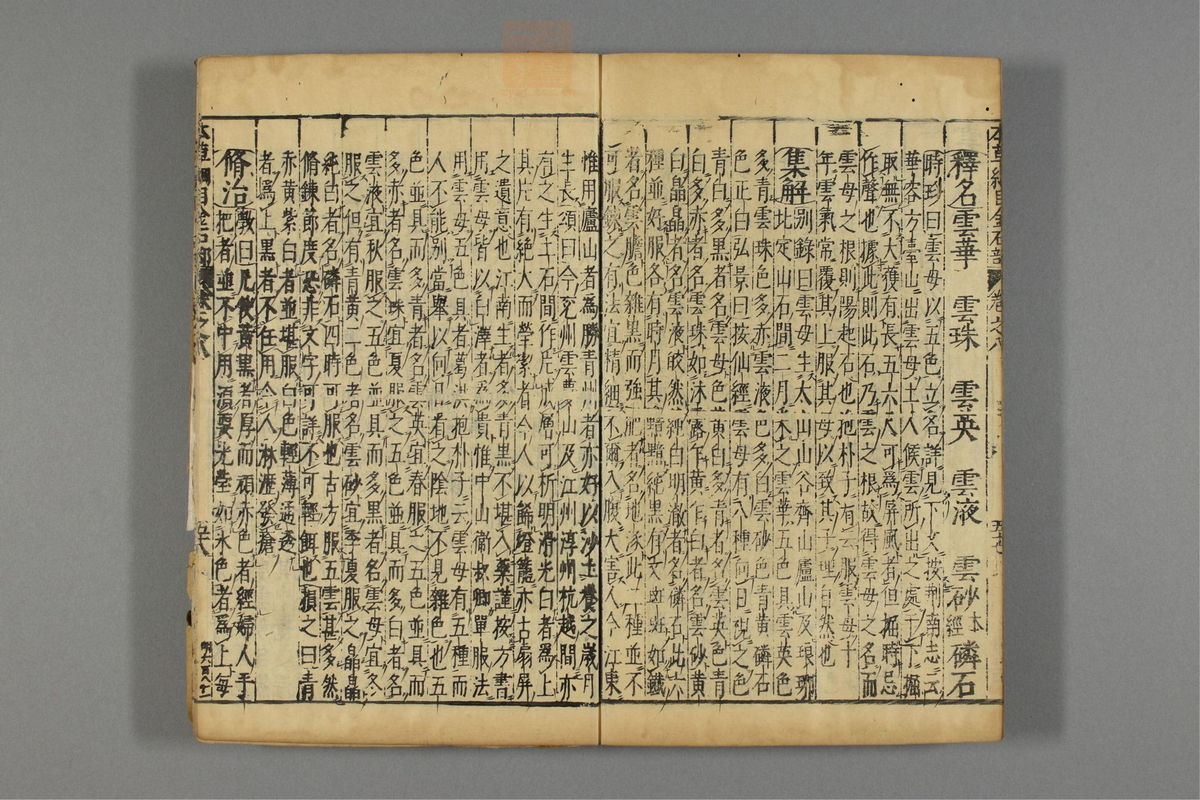 釋名雲華 雲珠 雲英 雲液 雲砂本經 磷石
時珍曰雲母以五色立名詳見下文按荊南志云
華容方臺山出雲母土人候雲所出之處于下掘
取無不大獲有長五六尺可為屏風者但掘時忌
作聲也據此則此石乃雲之根故得雲母之名而
雲母之根則陽起石也抱朴子有云服雲母十
年雲氣常覆其上服其母以致其子理自然也
集解別錄曰雲母生太山山谷齊山廬山及琅琊
北定山石間二月采之雲華五色具雲英色
多青雲珠色多赤雲液色多白雲砂色青黃磷石
色正白弘景曰按仙經雲母有八種向日視之色
青白多黑者名雲母色黃白多青者名雲英色青
白多赤者名雲珠如沐露乍黃乍白者名雲砂黃
白晶晶者名雲液皎然純白明澈者名磷石此六
種並好服各有時月其黯黯純黑有文斑斑如鐵
者名雲膽色雜黑而強肥者名地涿此二種並不
可服鍊之有法宜精細不爾入腹大害人今江東
惟用廬山者為勝青州者亦好以沙土養之歲月
生長頌曰今兗州雲夢山及江州淳州杭越間亦
有之生土石間作片成層可析明滑光白者為上
其片有絶大而瑩潔者今人以飾燈籠亦古扇屏
之遺意也江南生者多青黑不堪入藥謹按方書
用雲母皆以白澤者為貴惟中山衛叔卿單服法
用雲母五色具者葛洪抱朴子云雲母有五種而
人不能別當舉以向日看之陰地不見雜色也五
色並具而多青者名雲英宜春服之五色並具而
多赤者名雲珠宜夏服之五色並具而多白者名
雲液宜秋服之五色並具而多黑者名雲母宜冬
服之但有青黃二色者名雲砂宜季夏服之晶晶
純白者名磷石四時可服也古方服五雲甚多然
脩鍊節度恐非文字可詳不可輕餌也損之曰青
赤黃紫白者並堪服白色輕薄通透
者為上黑者不任用令人淋瀝發瘡
脩治斆曰凡使黃黑者厚而頑赤色者經婦人手
把者並不中用須要光瑩如氷色者為上每